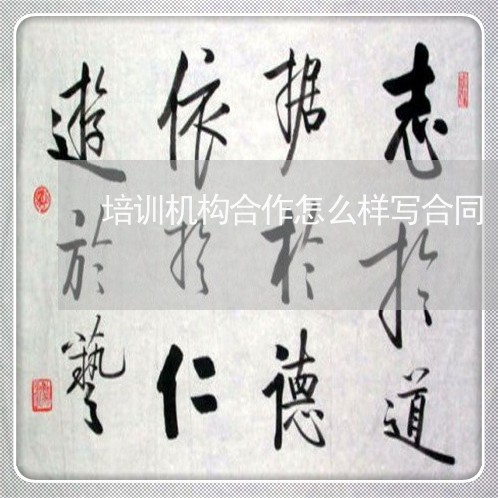 志於道
据於德
依於仁
遊於藝
培训机构合作怎么样写合同